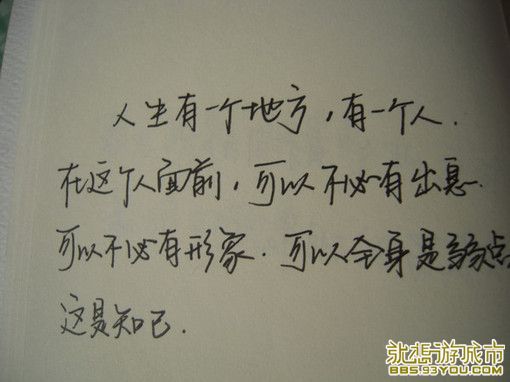 人生有一个地方，有一个人.
在这个人面前，可以不必有出息.
可以不必有形象.可以全身是弱点
这是知己.
就想游城市
BBS.93YOU.COM